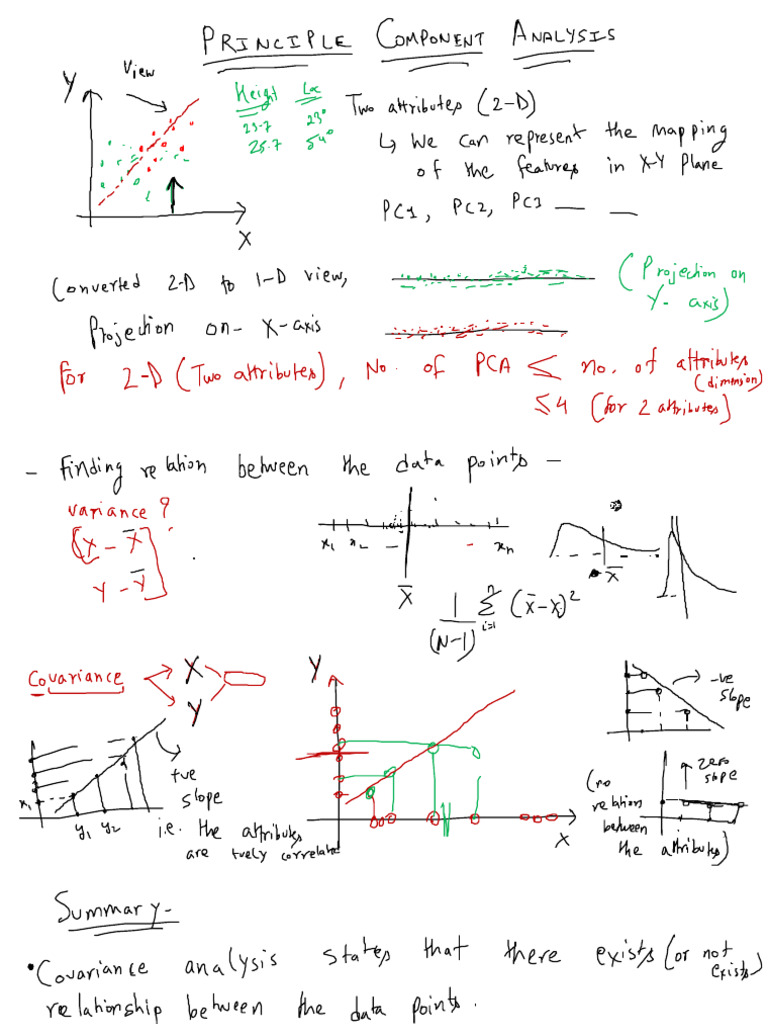 PRINCIPLE COMPONENT ANALYSIS
Y
View
X
Height Loc
23.7 23°
25.7 54°
Two attributes (2-D)
↳ We can represent the mapping
of the features in X-Y Plane
PC1, PC2, PC3 — —
Converted 2-D to 1-D view,
(Projection on
Y-axis)
Projection on- X-axis
for 2-D (Two attributes), No. of PCA ≤ no. of attributes
(dimension)
≤ 4 (for 2 attributes)
- Finding relation between the data points -
variance?
X - X̄
Y - Ȳ
x₁ x₂ — - xₙ
X̄
X̄
1/(N-1) Σ i=1 n (x̄-xᵢ)²
Covariance
X
Y
+ve
slope
x₁
y₁ y₂
i.e. the attributes
are tvely correlate
Y
X
-ve
slope
zero
slope
(no
relation
between
the attributes)
Summary-
• Covariance analysis states that there exists (or not
exists)
relationship between the data points.